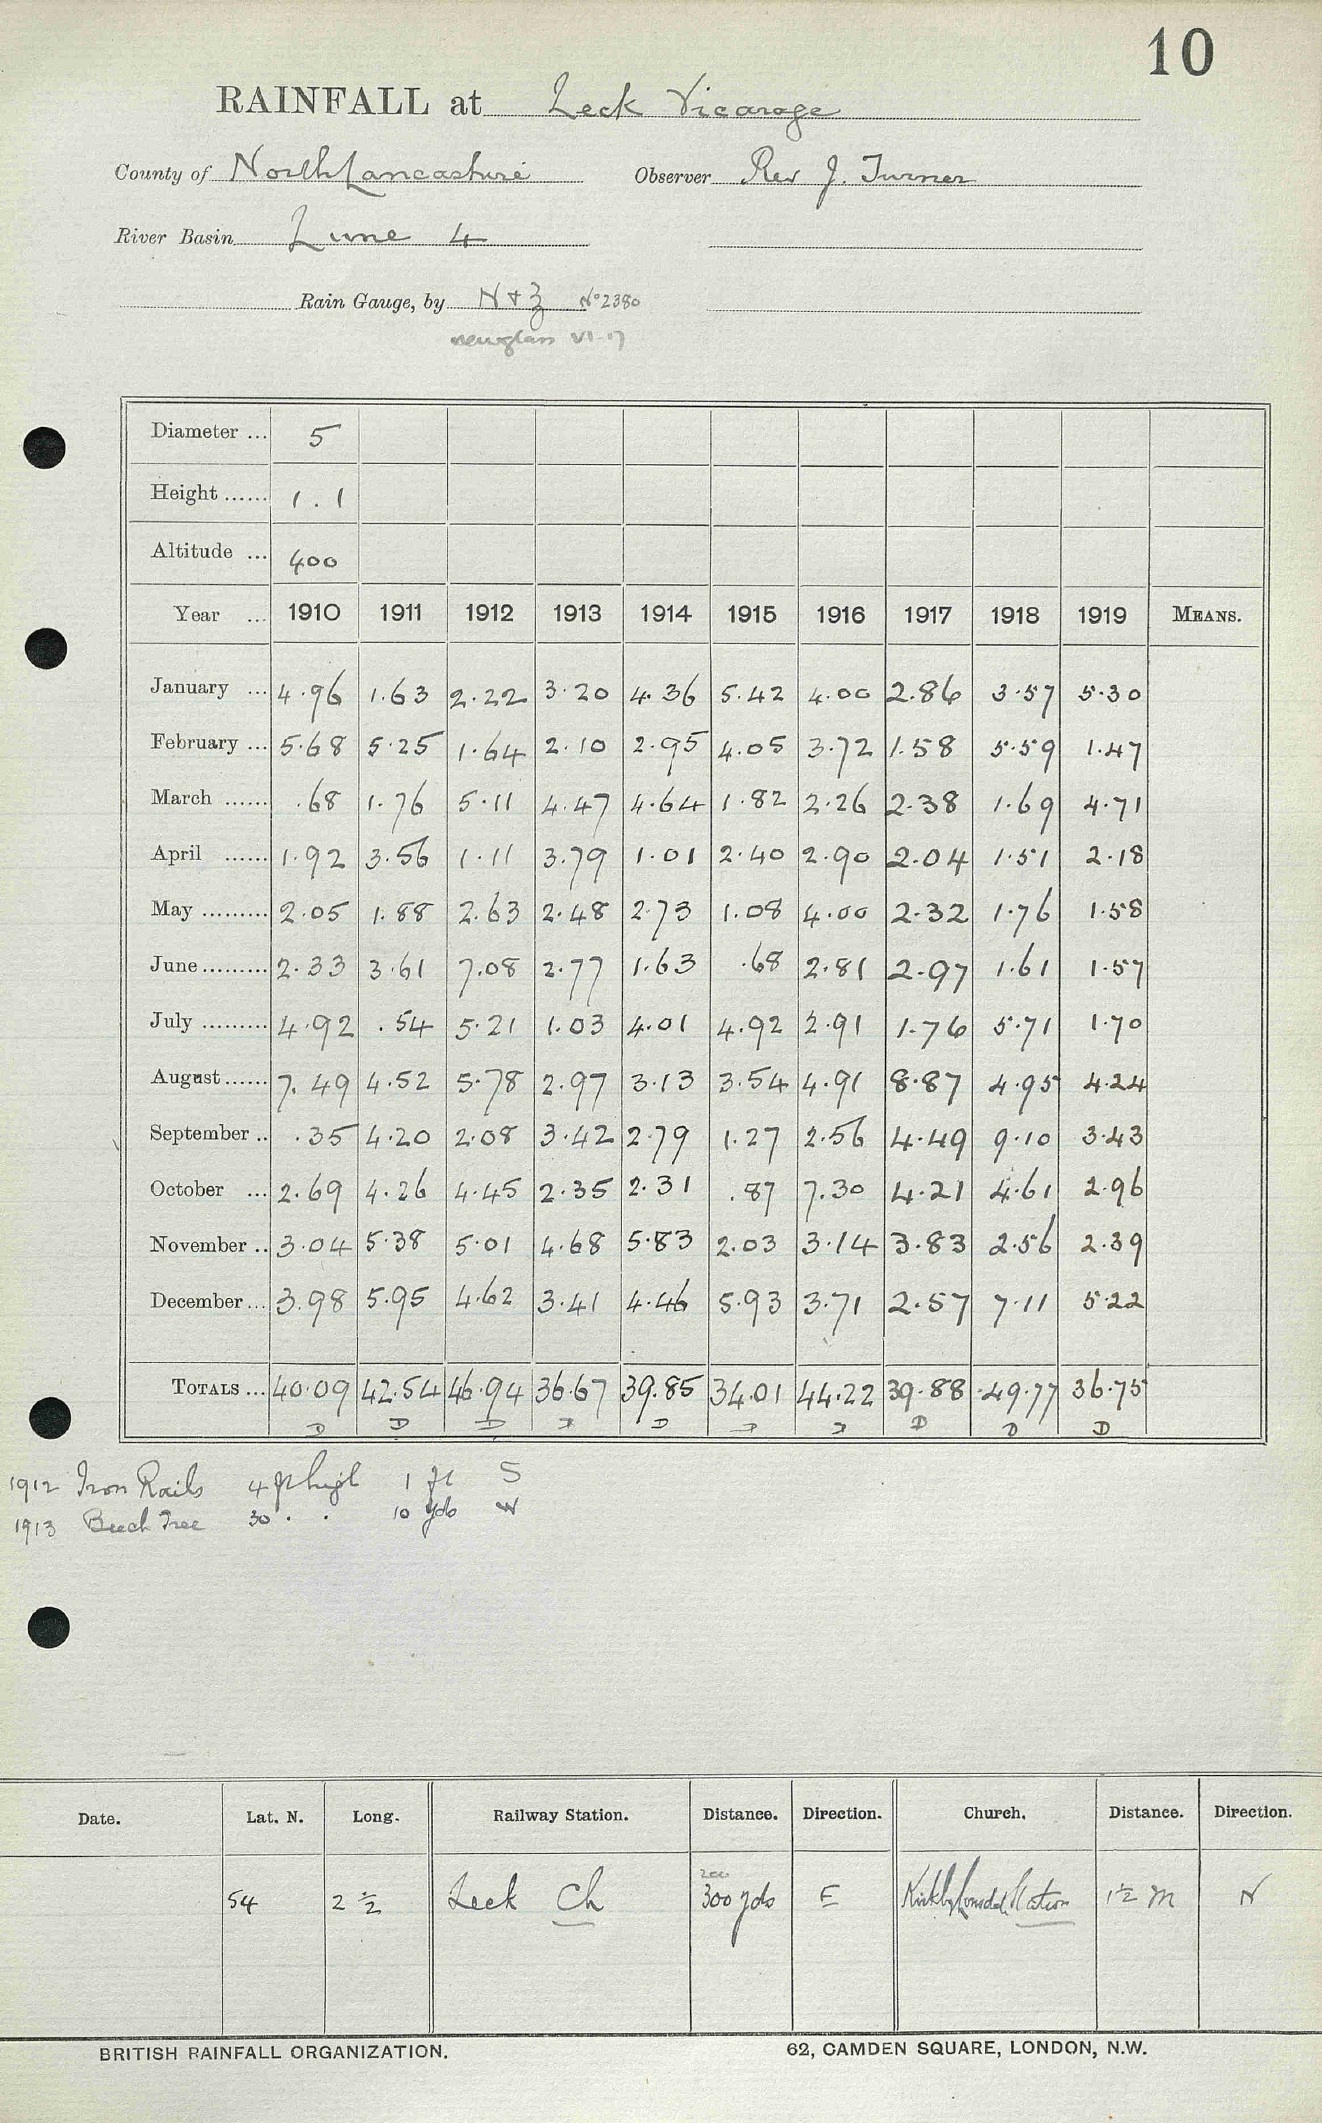 10
RAINFALL at Leck Vicarage
County of North Lancashire Observer Rev J. Turner
River Basin Lune 4
Rain Gauge, by N + Z No 2380
new glass VI. 17
Diameter ... 5
Height ...... 1.1
Altitude ... 400
Year ... 1910 1911 1912 1913 1914 1915 1916 1917 1918 1919 MEANS.
January ... 4.96 1.63 2.22 3.20 4.36 5.42 4.00 2.86 3.57 5.30
February ... 5.68 5.25 1.64 2.10 2.95 4.05 3.72 1.58 5.59 1.47
March ...... .68 1.76 5.11 4.47 4.64 1.82 2.26 2.38 1.69 4.71
April ...... 1.92 3.56 1.11 3.79 1.01 2.40 2.90 2.04 1.51 2.18
May ......... 2.05 1.88 2.63 2.48 2.73 1.08 4.00 2.32 1.76 1.58
June ......... 2.33 3.61 7.08 2.77 1.63 .68 2.81 2.97 1.61 1.57
July ......... 4.92 .54 5.21 1.03 4.01 4.92 2.91 1.76 5.71 1.70
August ...... 7.49 4.52 5.78 2.97 3.13 3.54 4.91 8.87 4.95 4.24
September .. .35 4.20 2.08 3.42 2.79 1.27 2.56 4.49 9.10 3.43
October ... 2.69 4.26 4.45 2.35 2.31 .87 7.30 4.21 4.61 2.96
November .. 3.04 5.38 5.01 4.68 5.83 2.03 3.14 3.83 2.56 2.39
December ... 3.98 5.95 4.62 3.41 4.46 5.93 3.71 2.57 7.11 5.22
TOTALS ... 40.09 42.54 46.94 36.67 39.85 34.01 44.22 39.88 49.77 36.75
D D D D D D D D D D
1912 Iron Rails 4 ft high 1 ft S
1913 Beech Tree 30 . . 10 yds W
Date. Lat. N. Long. Railway Station. Distance. Direction. Church. Distance. Direction.
200
54 2 1/2 Leck Ch 300 yds E Kirkby Lonsdale Station 1 1/2 m N
BRITISH RAINFALL ORGANIZATION. 62, CAMDEN SQUARE, LONDON, N.W.